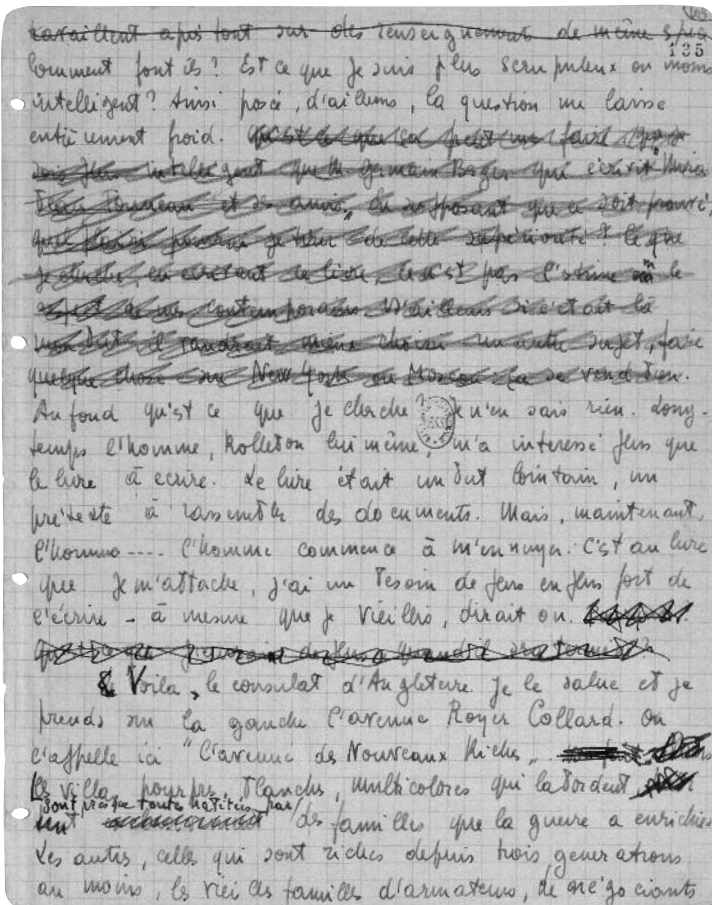 travaillent après tout sur des renseignements de même
135
Comment font ils? Est ce que je suis plus scrupuleux ou moins
intelligent? Ainsi posée, d'ailleurs, la question me laisse
entièrement froid. Qu'est ce que ça peut me faire que je
sois plus intelligent que M. Germain Berger qui écrivit
et ses amis", en supposant que ce soit prouvé,
quel plaisir pourrai je tirer de cette supériorité? Ce que
je cherche, en écrivant ce livre, ce n'est pas l'estime ni le
respect de mes contemporains. D'ailleurs si c'était là
mon but il faudrait même choisir un autre sujet, faire
quelque chose sur New York ou Moscou: ça se vend bien.
Au fond qu'est ce que je cherche? Je n'en sais rien. Long-
temps l'homme, Rollebon lui même, m'a interessé plus que
le livre à ecrire. Le livre était un but lointain, un
prétexte à rassembler des documents. Mais, maintenant,
l'homme.... l'homme commence à m'ennuyer. C'est au livre
que je m'attache, j'ai un besoin de plus en plus fort de
l'écrire - à mesure que je vieillis, dirait on.
Voila, le consulat d'Angleterre. Je le salue et je
prends sur la gauche l'avenue Royer Collard. On
l'appelle ici "l'avenue des Nouveaux Riches"
Les villas pourpres, blanches, multicolores qui la bordent
sont presque toutes habitées par
des familles que la guerre a enrichies
Les autres, celles qui sont riches depuis trois generations
au moins, les vieilles familles d'armateurs, de négociants